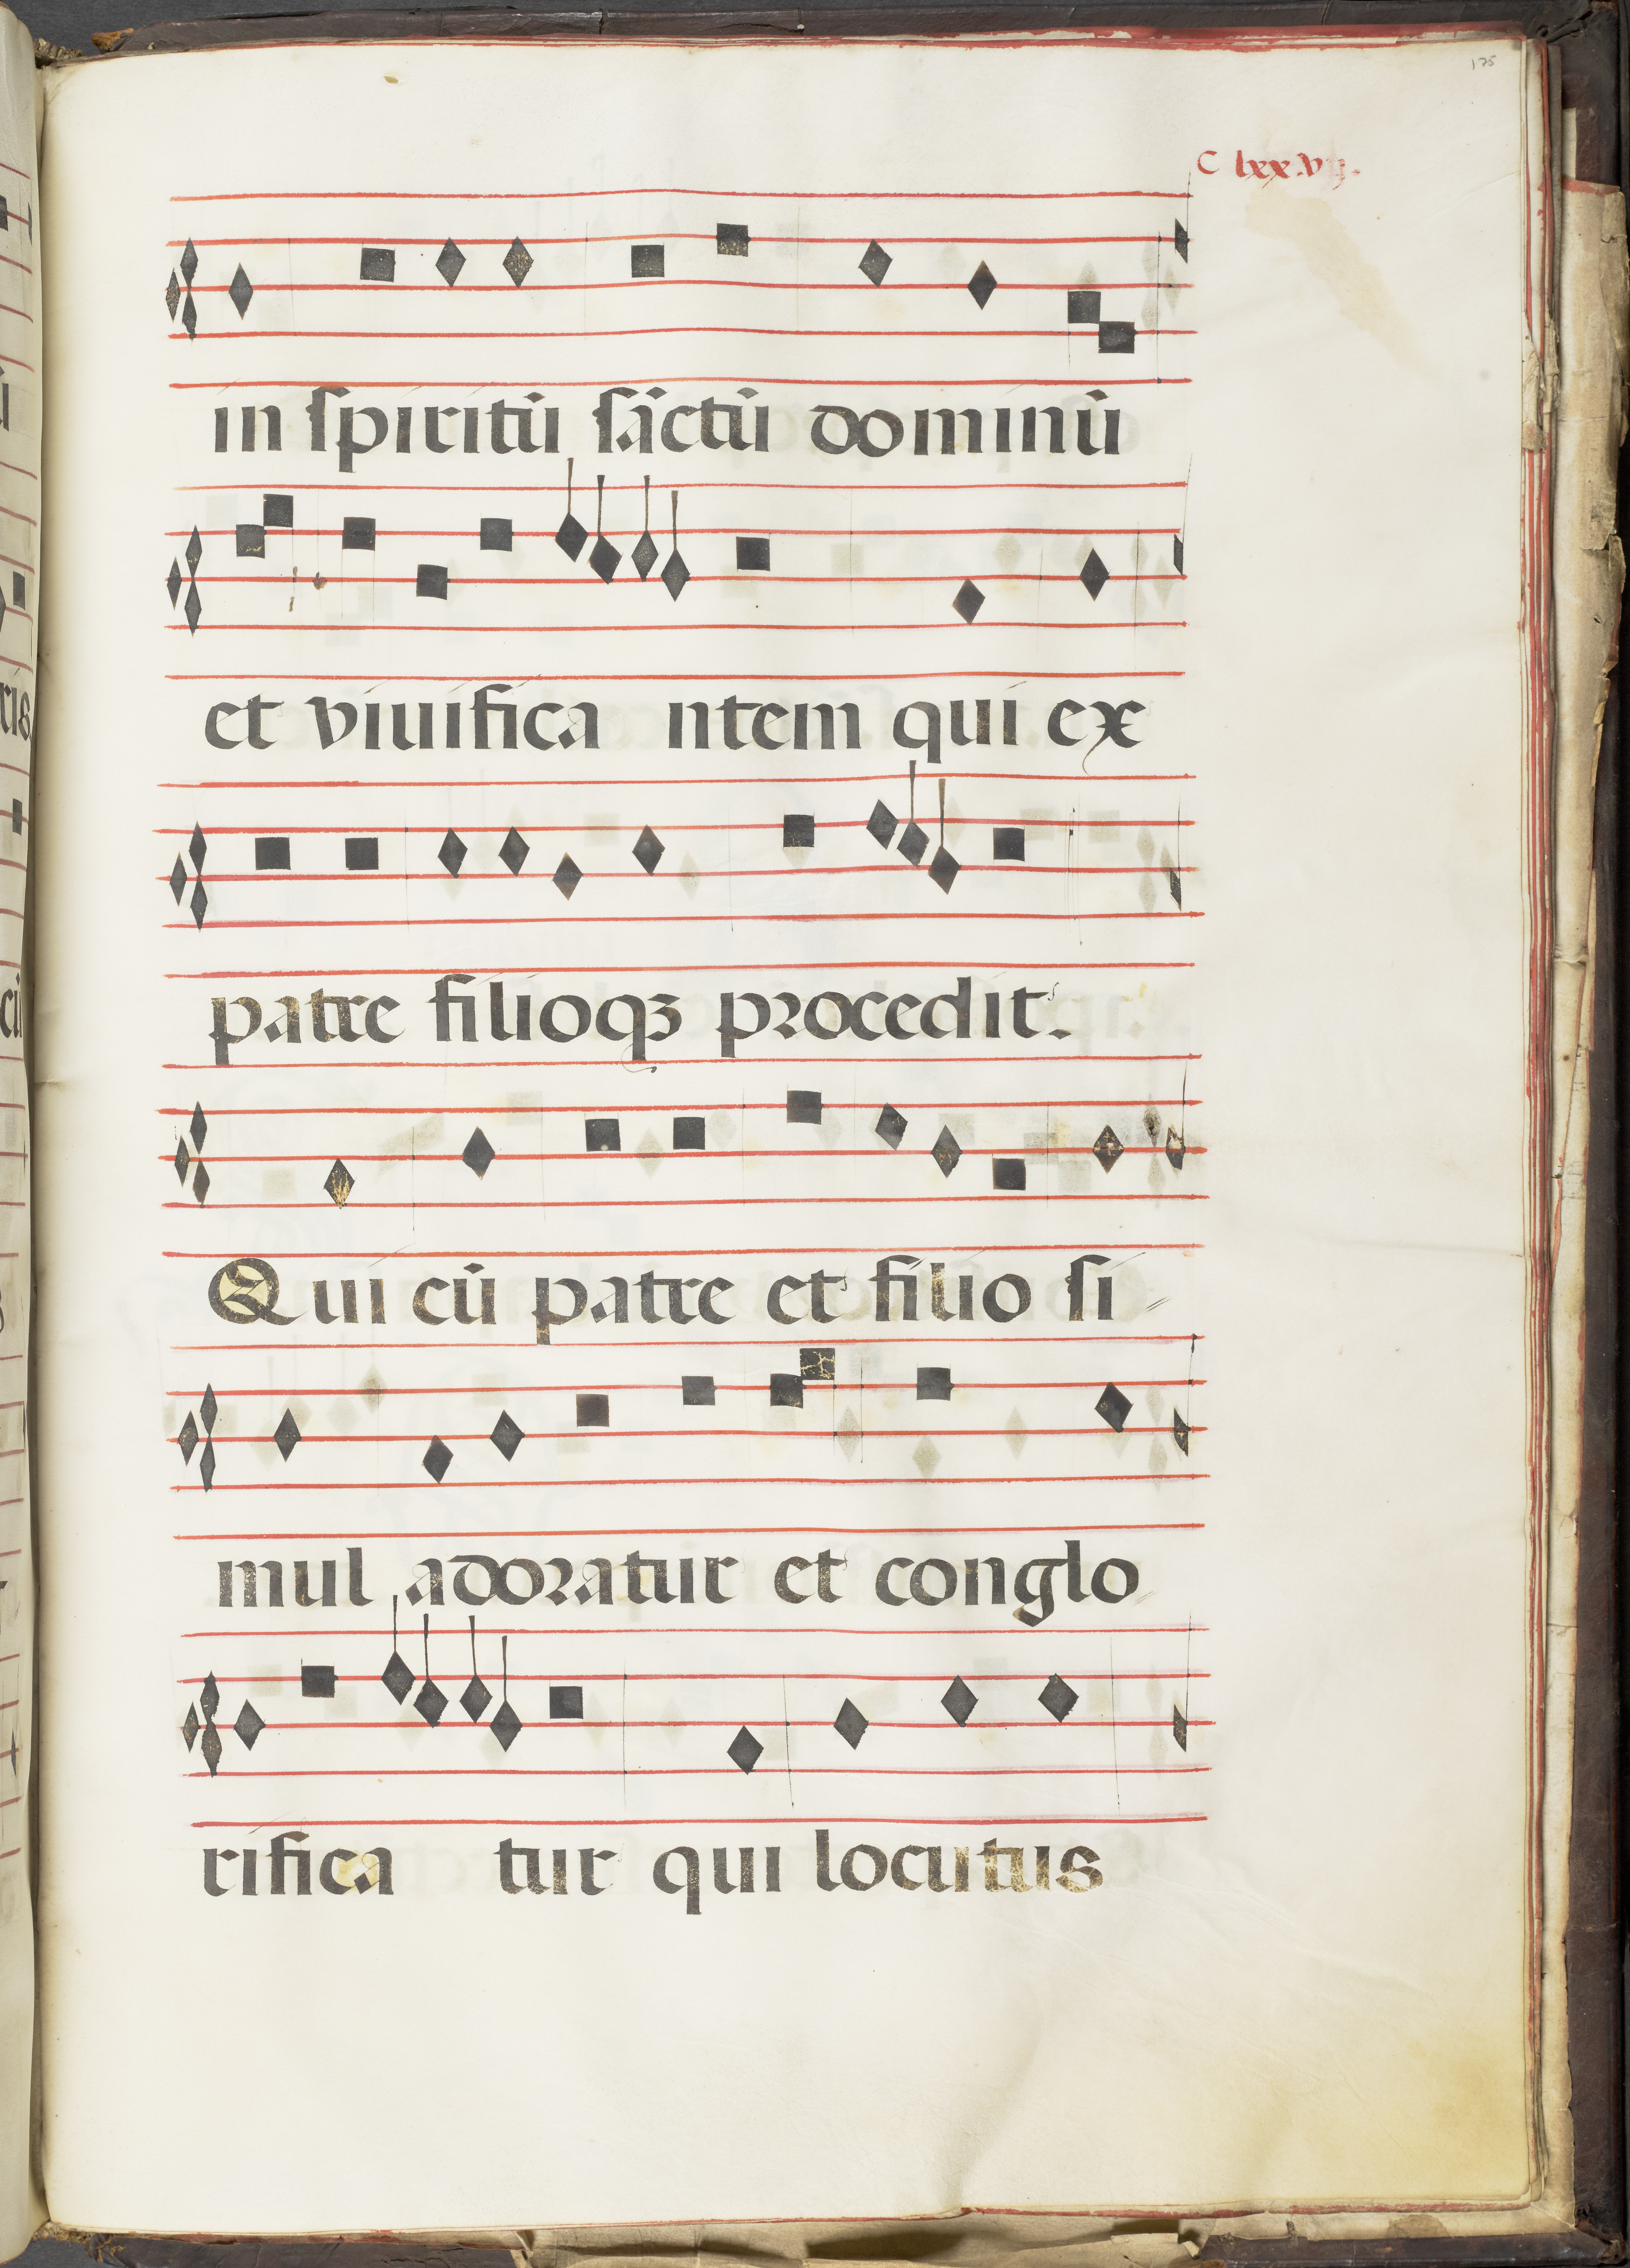 175
C lxx.vij.
in ſpiritū ſāctū dominū
et viuifica ntem qui ex
patre filioqꝫ procedit.
Qui cū patre et filio ſi
mul adoratur et conglo
rifica tur qui locutus